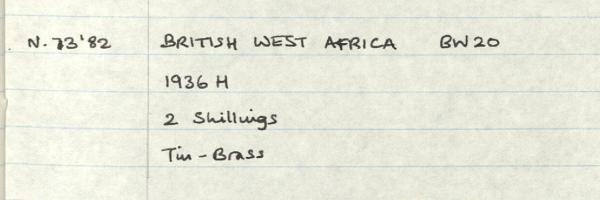 N. 73'82 BRITISH WEST AFRICA BW20
1936 H
2 Shillings
Tin - Brass